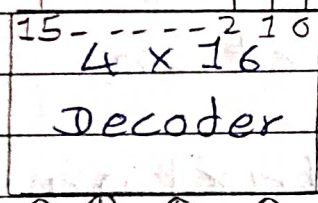 15------2 1 0
4 x 16
Decoder